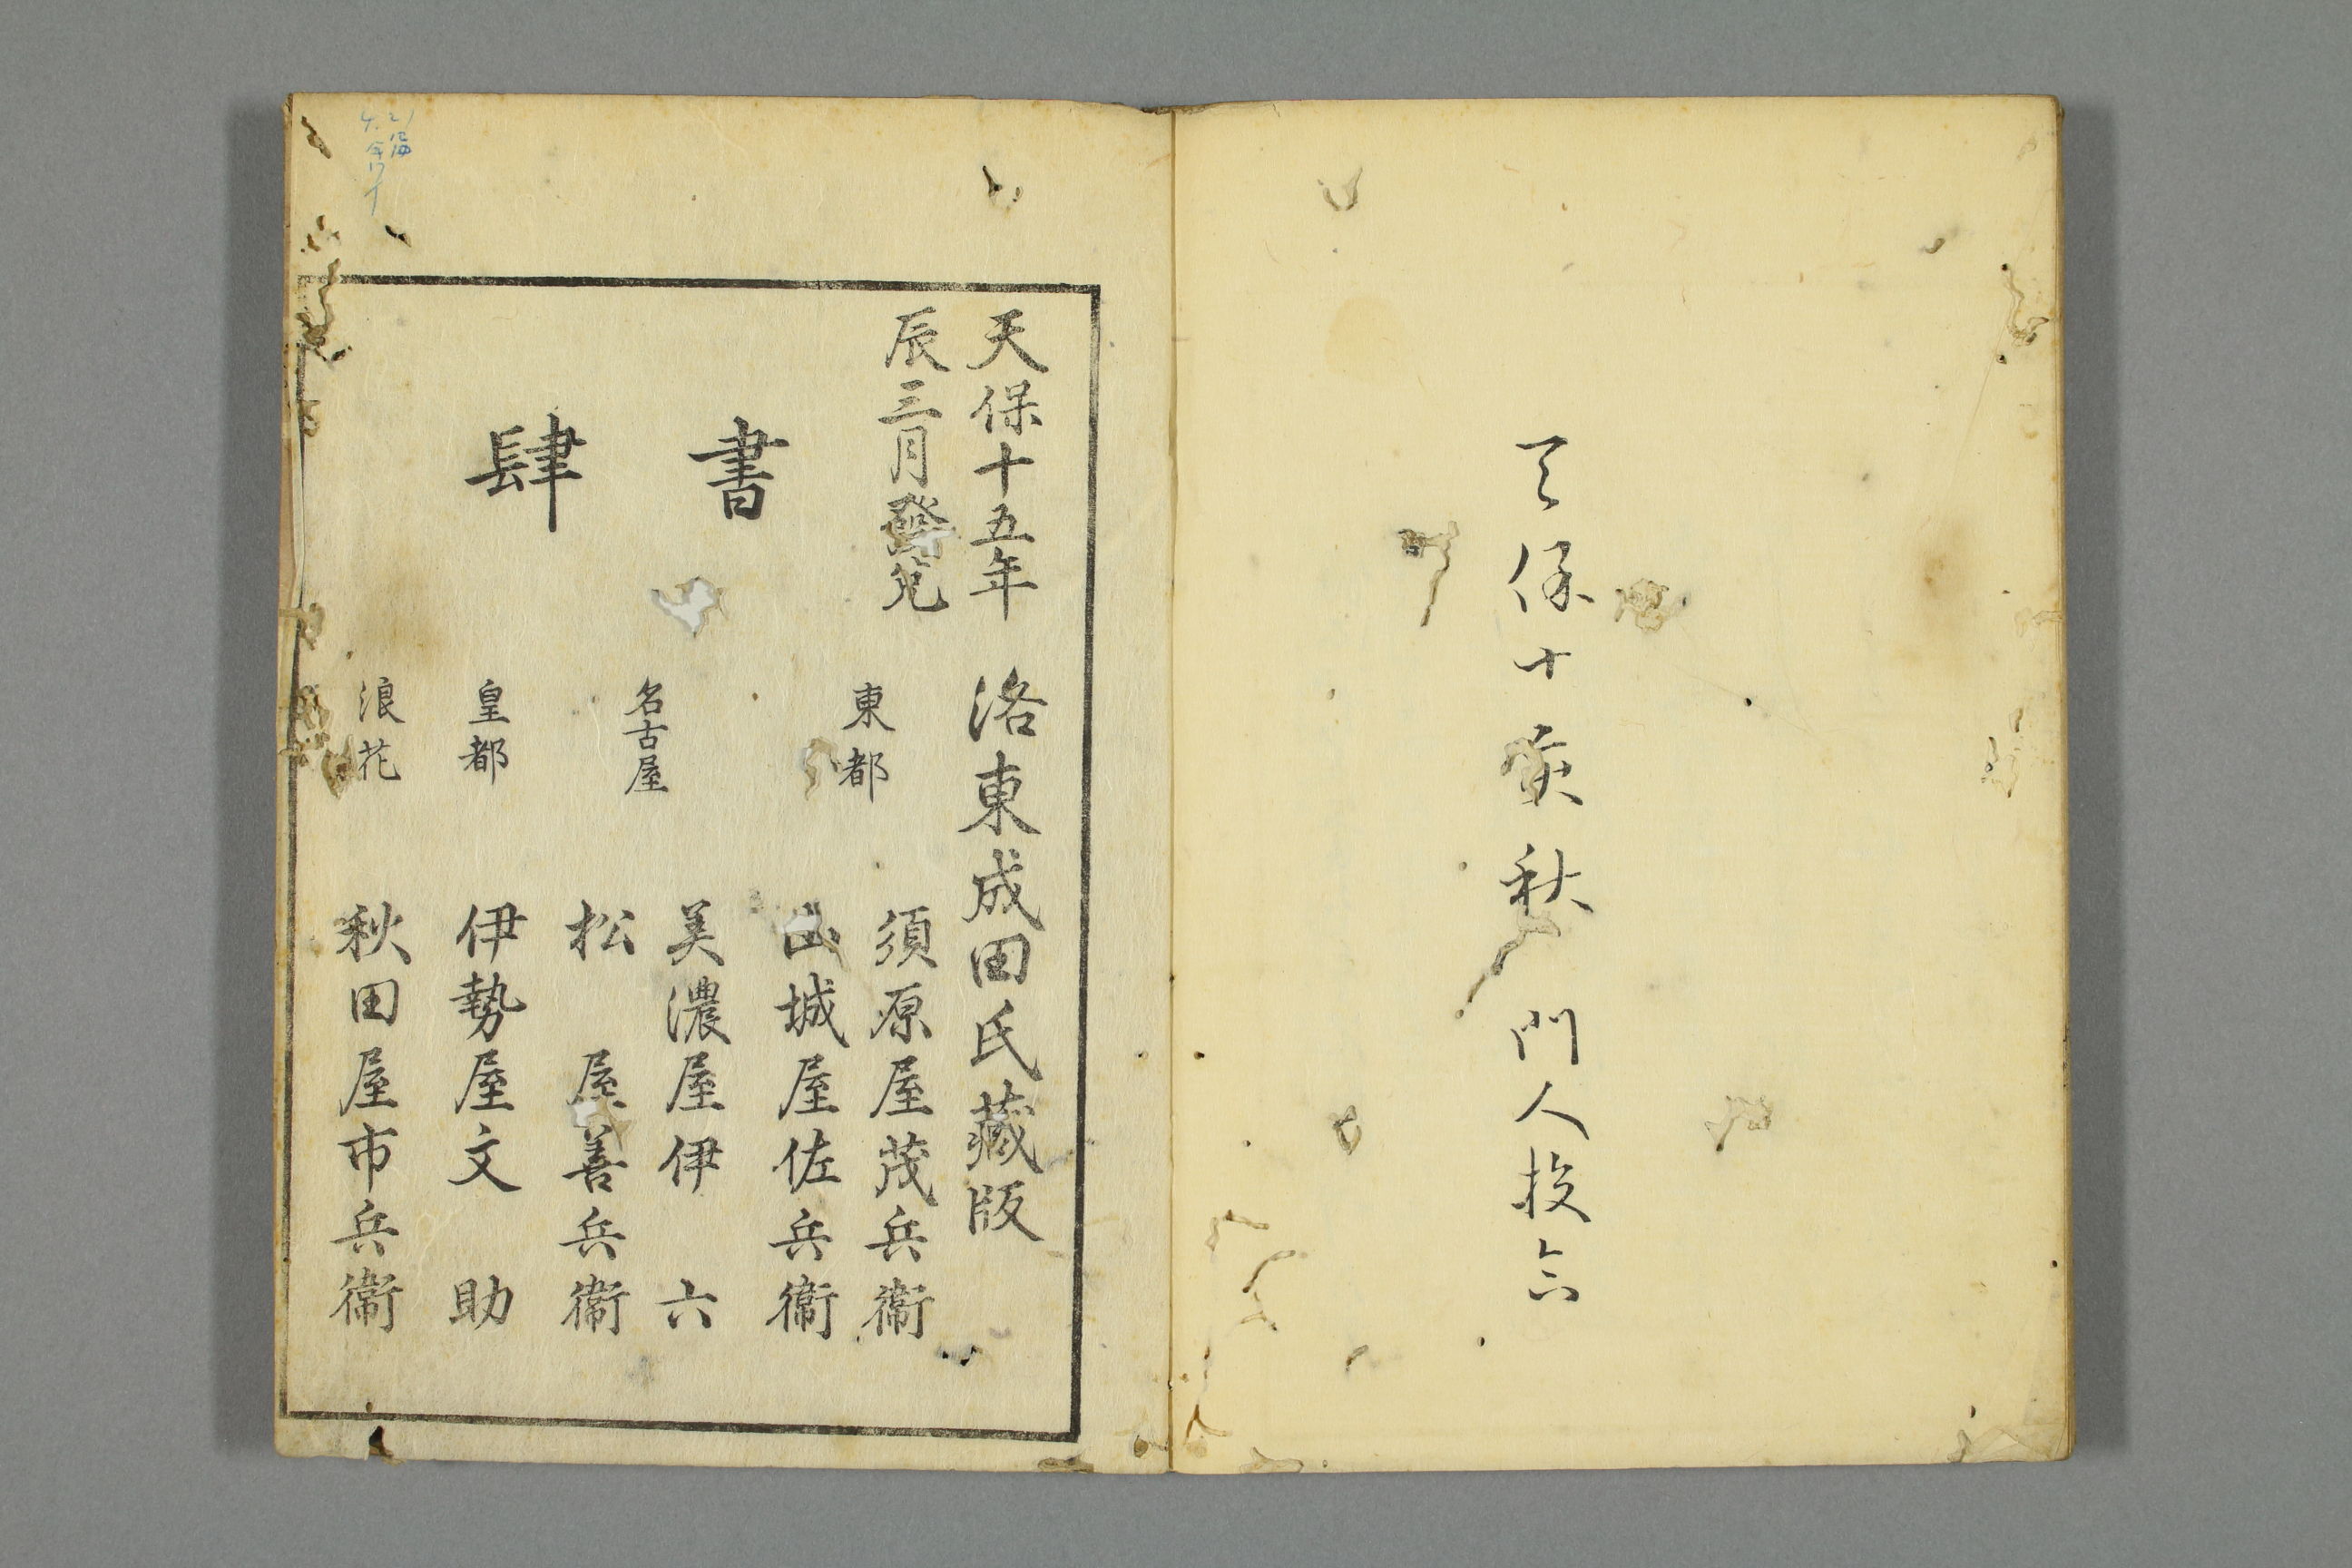 天保十亥秋 門人
天保十五年
辰三月發兌
洛東成田氏藏版
書肆
東都
須原屋茂兵衞
山城屋佐兵衞
名古屋
美濃屋伊六
松屋善兵衞
皇都
伊勢屋文助
浪花
秋田屋市兵衞